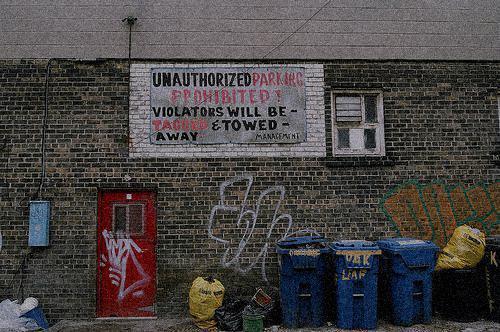 UNAUTHORIZED PARKING
PROHIBITED!
VIOLATORS WILL BE-
TAGGED & TOWED-
AWAY
MANAGEMENT
K